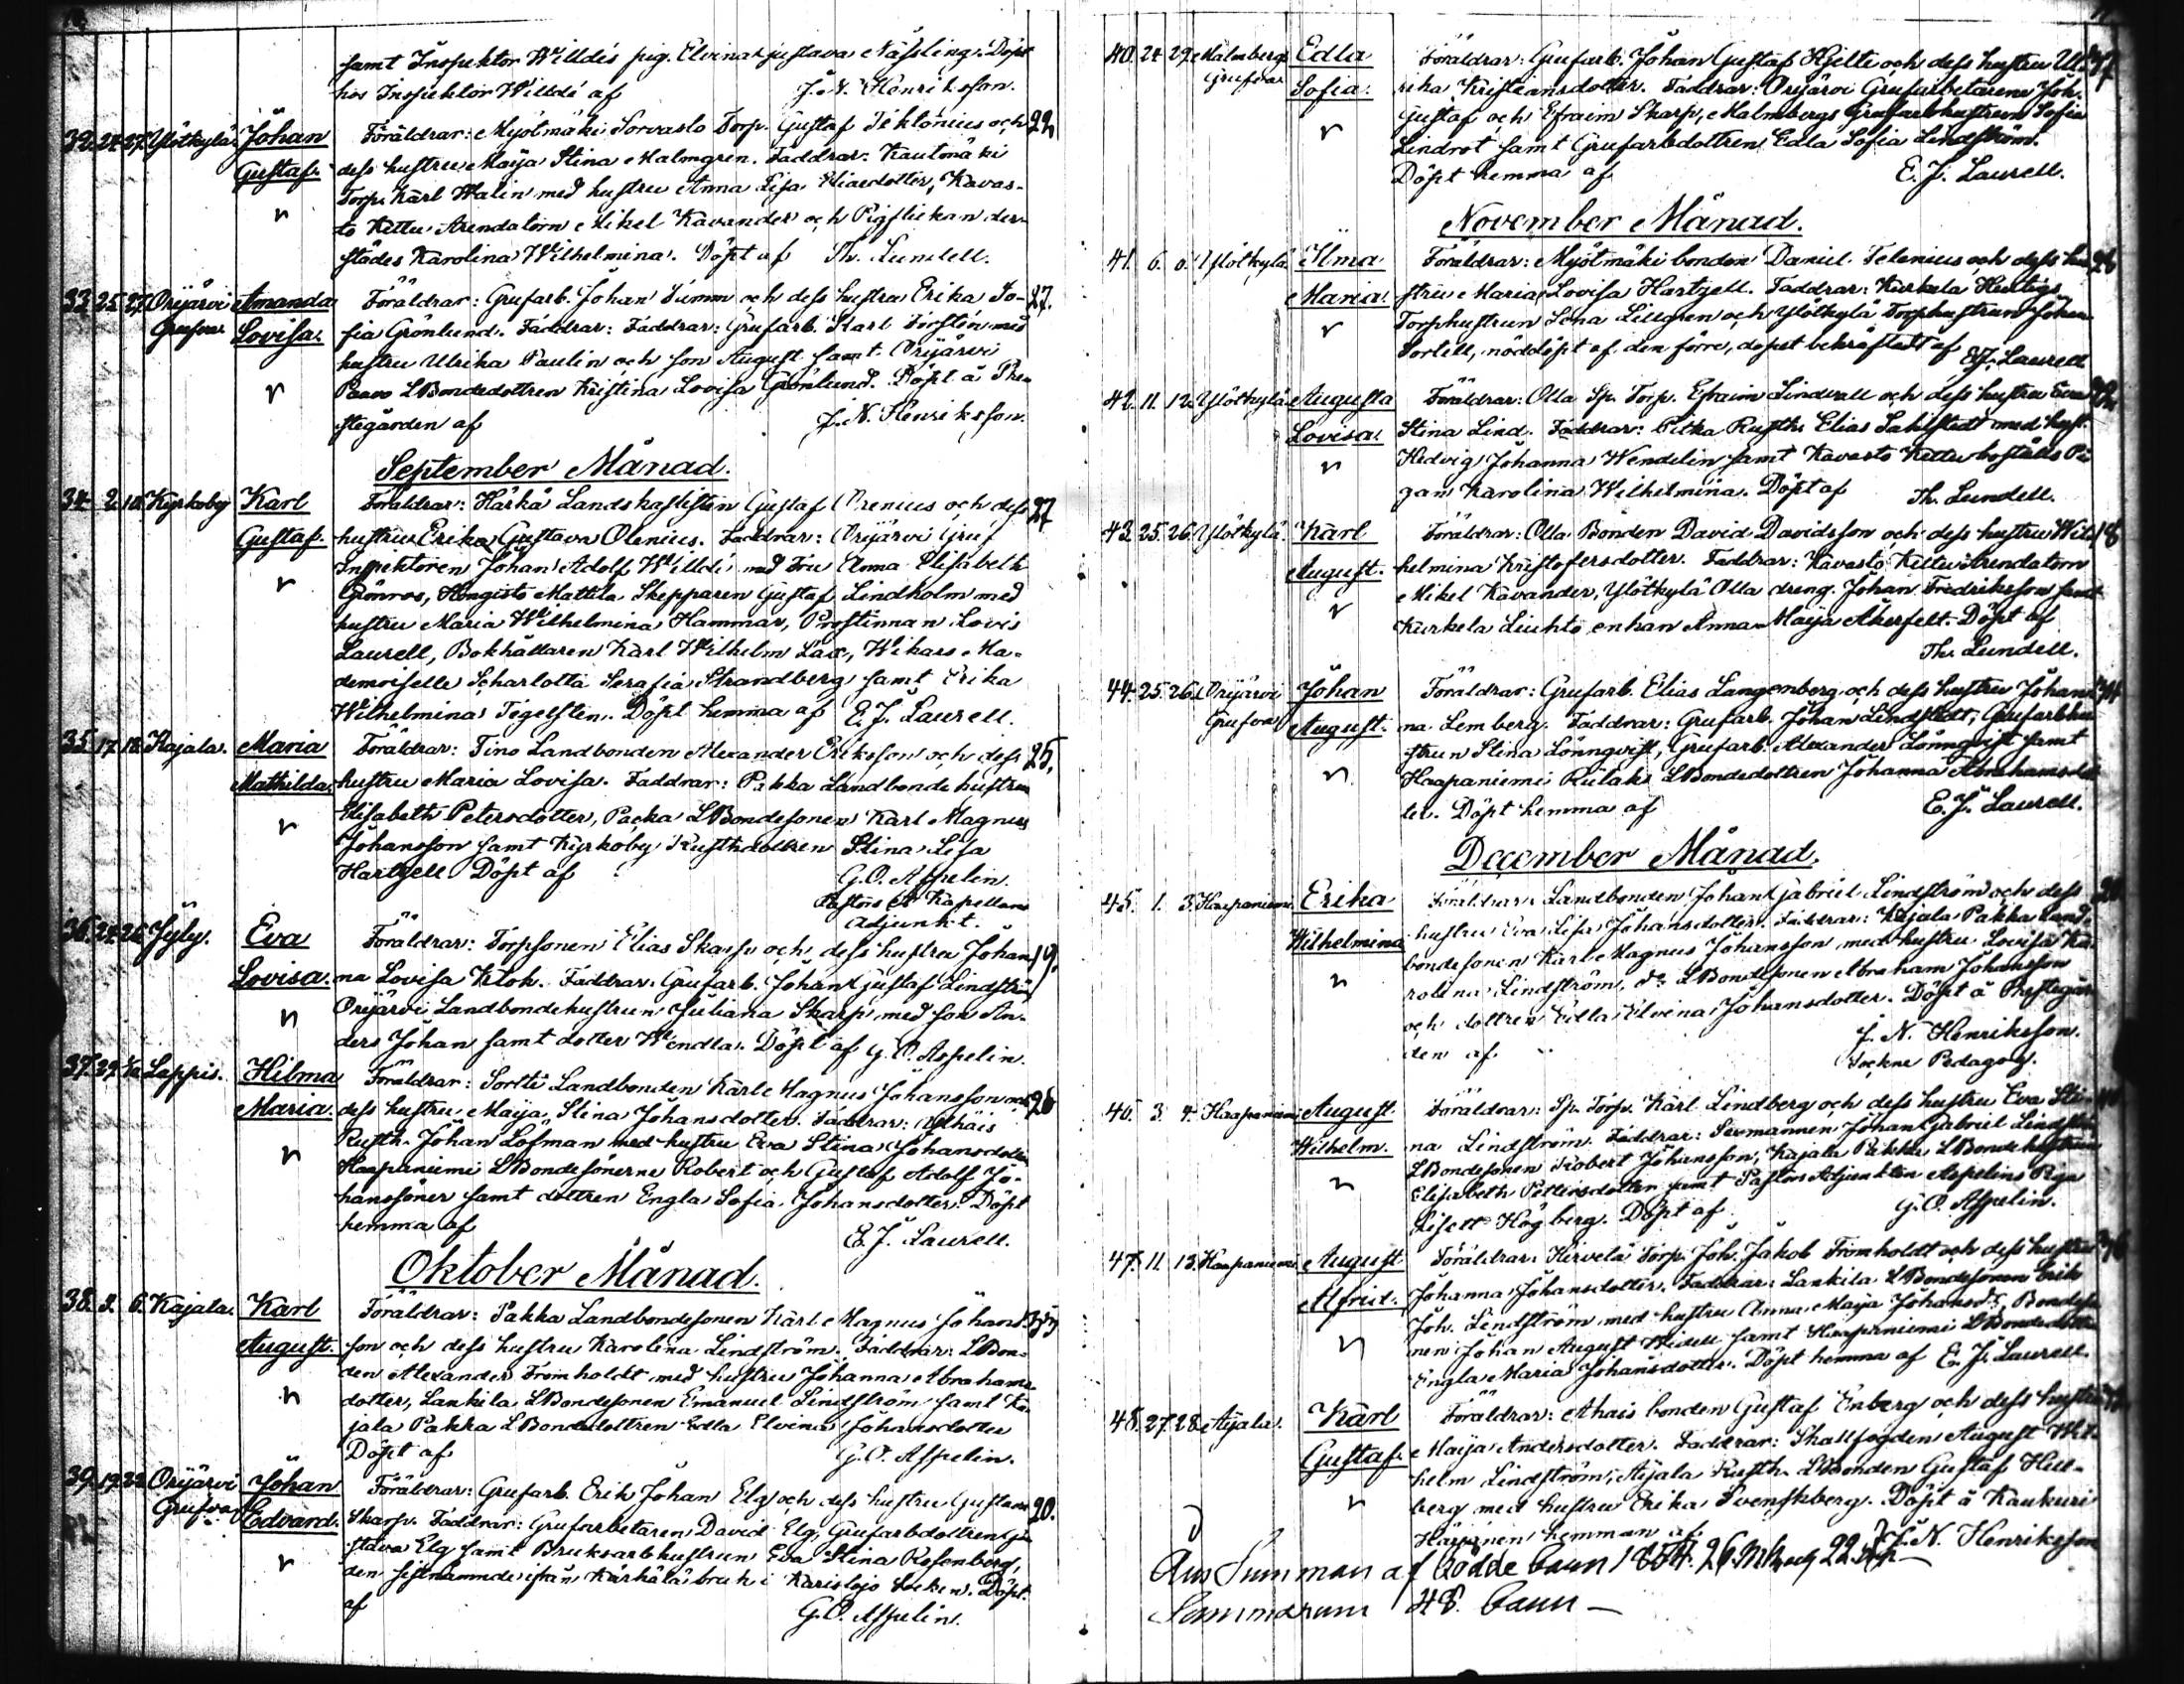 samt Inspektor Willdés pig. Elvina Gustava Nässling. Döpt
hos Inspektor Willdé af J. N. Henriksson.
32. 24 27. Ylötkylä. Johan Föräldrar: Myötmäki Sorvasto Torp. Gustaf Tektonius och 22
Gustaf. dess hustru Maija Stina Malmgren. Faddrar: Kautmäki
Torp. Karl Walin med hustru Anna Lisa Eliaedotter, Kavas-
to Kettu Arendatorn Mikel Kavander och Pigflickan der-
städes Karolina Wilhelmina. Döpt af Th. Lundell.
33. 25 27. Orijärvi Amanda Föräldrar: Grufarb. Johan Tumm och dess hustru Erika So- 27.
Grufva. Lovisa. fia Grönlund. Faddrar: Faddrar: Grufarb. Karl Torstén med
hustru Ulrika Paulin och son August samt Orijärvi
Paavo LBondedottren Kristina Lovisa Grönlund. Döpt å Pre-
stegården af J. N. Henriksson.
September Månad.
34. 2. 10. Kyrkoby Karl Föräldrar: Härkä Landskaflisten Gustaf Orenius och dess 27
Gustaf. hustru Erika Gustava Olenius. Faddrar: Orijärvi Gruf
Inspektoren Johan Adolf Willdé med Fru Anna Elisabeth
Gönros, Hongisto Mattila Skepparen Gustaf Lindholm med
hustru Maria Wilhelmina Hammar, Prostinnan Lovis
Laurell, Bokhållaren Karl Wilhelm Lax, Wihars Ma-
demoiselle Scharlotta Serafia Strandberg samt Erika
Wilhelmina Tegelsten. Döpt hemma af E. J. Laurell.
35. 17. 18. Kajala. Maria Föräldrar: Tino Landbonden Alexander Eriksson och dess 25,
Mathilda. hustru Maria Lovisa. Faddrar: Pakka Landbonde hustrun
Elisabeth Petersdotter, Packa LBondesonen Karl Magnus
Johansson samt Kyrkoby Rusthdottren Stina Lisa
Hartzell Döpt af G. O. Aspelin.
Pastors o. Kapellans
Adjunkt.
36. 24 26. Jyly. Eva Föräldrar: Torpsonen Elias Skarp och dess hustru Johan- 19.
Lovisa. na Lovisa Klok. Faddrar: Grufarb. Johan Gustaf Lindström
Orijärvi Landbondehustrun Juliana Skarp med son An-
ders Johan samt dotter Wendla. Döpt af G. O. Aspelin.
37. 29. Lappis. Hilma Föräldrar: Sortti Landbonden Karl Magnus Johansson och 26
Maria. dess hustru Maija Stina Johansdotter. Faddrar: Mhäis
Rusth. Johan Löfman med hustru Eva Stina Johansdotter
Haapaniemi LBondesönerne Robert och Gustaf Adolf Jo-
hanssöner samt dottren Engla Sofia Johansdotter. Döpt
hemma af E. J. Laurell.
Oktober Månad.
38. 3. 6. Kajala. Karl Föräldrar: Pakka Landbondesonen Karl Magnus Johans- 33
August. son och dess hustru Karolina Lindström. Faddrar: LBon-
den Alexander Fromholdt med hustru Johanna Abrahams-
dotter, Lankila LBondesonen Emanuel Lindström samt Ka-
jala Pakka LBondedottren Edla Elvina Johansdotter
Döpt af G. O. Aspelin.
39. 19. 22. Orijärvi Johan Föräldrar: Grufarb. Erik Johan Elg och dess hustru Gustava 20.
Grufva Edvard. Skarp. Faddrar: Grufarbetaren David Elg, Grufarbdottren Gu-
stava Elg samt Bruksarbhustrun Eva Stina Rosenberg,
den sistnämnde ifrån Kärkälä bruk i Karislojo Socken. Döpt
af G. O. Aspelin.
40. 24 29. Malmbergs Edla Föräldrar: Grufarb. Johan Gustaf Hjelte och dess hustru Ul- 37
Grufva Sofia. rika Kristiansdotter. Faddrar: Orijärvi Grufarbetarena Joh.
Gustaf och Efraim Skarp, Malmbergs Grufarbhustrun Sofia
Lindrot samt Grufarbdottren Edla Sofia Lindström.
Döpt hemma af E. J. Laurell.
November Månad.
41. 6. 6. Ylötkylä. Ilma Föräldrar: Myötmäki bonden Daniel Felenius och dess hu- 26
Maria. stru Maria Lovisa Hartzell. Faddrar: Kurkela
Torphustrun Lena Lillgren och Ylötkylä Torphustrun Johan
Sortell, nöddöpt af den förre, dopet bekräftadt af E. J. Laurell
42. 11. 12. Ylötkylä Augusta Föräldrar: Olla Sp. Torp. Efraim Lindvall och dess hustru Eva
Lovisa. Stina Lind. Faddrar: Pitka Rusth. Elias Sahlstedt med hust.
Hedvig Johanna Wendelin samt Kavasto Kettu boställs Pi-
gan Karolina Wilhelmina. Döpt af Th. Lundell.
43. 25. 26. Ylötkylä. Karl Föräldrar: Olla Bonden David Davidsson och dess hustru Wil- 18
August. helmina Kristofersdotter. Faddrar: Kavasto Kettu Arendatorn
Mikel Kavander, Ylötkylä Olla dreng. Johan Fredriksson samt
Kurkela Liuhto enkan Anna Maija Åkerfelt. Döpt af
Th. Lundell.
44. 25. 26. Orijärvi Johan Föräldrar: Grufarb. Elias Langemberg och dess hustru Johan- 34
Grufva August. na Lemberg. Faddrar: Grufarb. Johan Lindstedt, Grufarbhu-
strun Stina Lönnqvist, Grufarb. Alexander Lönnqvist samt
Haapaniemi Rulaks LBondedottren Johanna Abrahamsdot-
ter. Döpt hemma af E. J. Laurell.
December Månad.
45. 1. 3. Haapaniemi Erika Föräldrar: Landbonden Johan Gabriel Lindström och dess
Wilhelmina hustru Eva Lisa Johansdotter. Faddrar: Kajala Pakka Land-
bondesonen Karl Magnus Johansson med hustru Lovisa Ka-
rolina Lindström, d:o LBondesonen Abraham Johansson
och dottren Edla Elvina Johansdotter. Döpt å Prestegår-
den af J. N. Henriksson.
Sockne Pedagog.
46. 3 4. Haapaniemi August Föräldrar: Sp. Torp. Karl Lindberg och dess hustru Eva Sti-
Wilhelm. na Lindström. Faddrar: Sexmannen Johan Gabriel Lindström
LBondesonen Robert Johansson, Kajala Pakka LBonde hustrun
Elisabeth Pettersdotter samt Pastors Adjunkten Aspelins Piga
Lisett Högberg. Döpt af G. O. Aspelin.
47. 11. 13. Haapaniemi August Föräldrar: Hirvelä Torp. Joh. Jakob Fromholdt och dess hustru
Alfrid. Johanna Johansdotter. Faddrar: Lankila LBondesonen Erik
Joh. Lindström med hustru Anna Maija Johansd:r, Bondeso-
nen Johan August Widell samt Haapaniemi LBondedottren
Engla Maria Johansdotter. Döpt hemma af E. J. Laurell.
48. 27. 28. Aijala. Karl Föräldrar: Ahais bonden Gustaf Enberg och dess hustru
Gustaf. Maija Andersdotter. Faddrar: Skallfogden August Wil-
helm Lindström, Aijala Rusth. LBonden Gustaf Hell-
berg med hustru Erika Svenskberg. Döpt å Kaukuri
Härjänen hemman af J. N. Henriksson
Års Summan af födde barn 26 Mk och 22 Qk
Summarum 48. barn